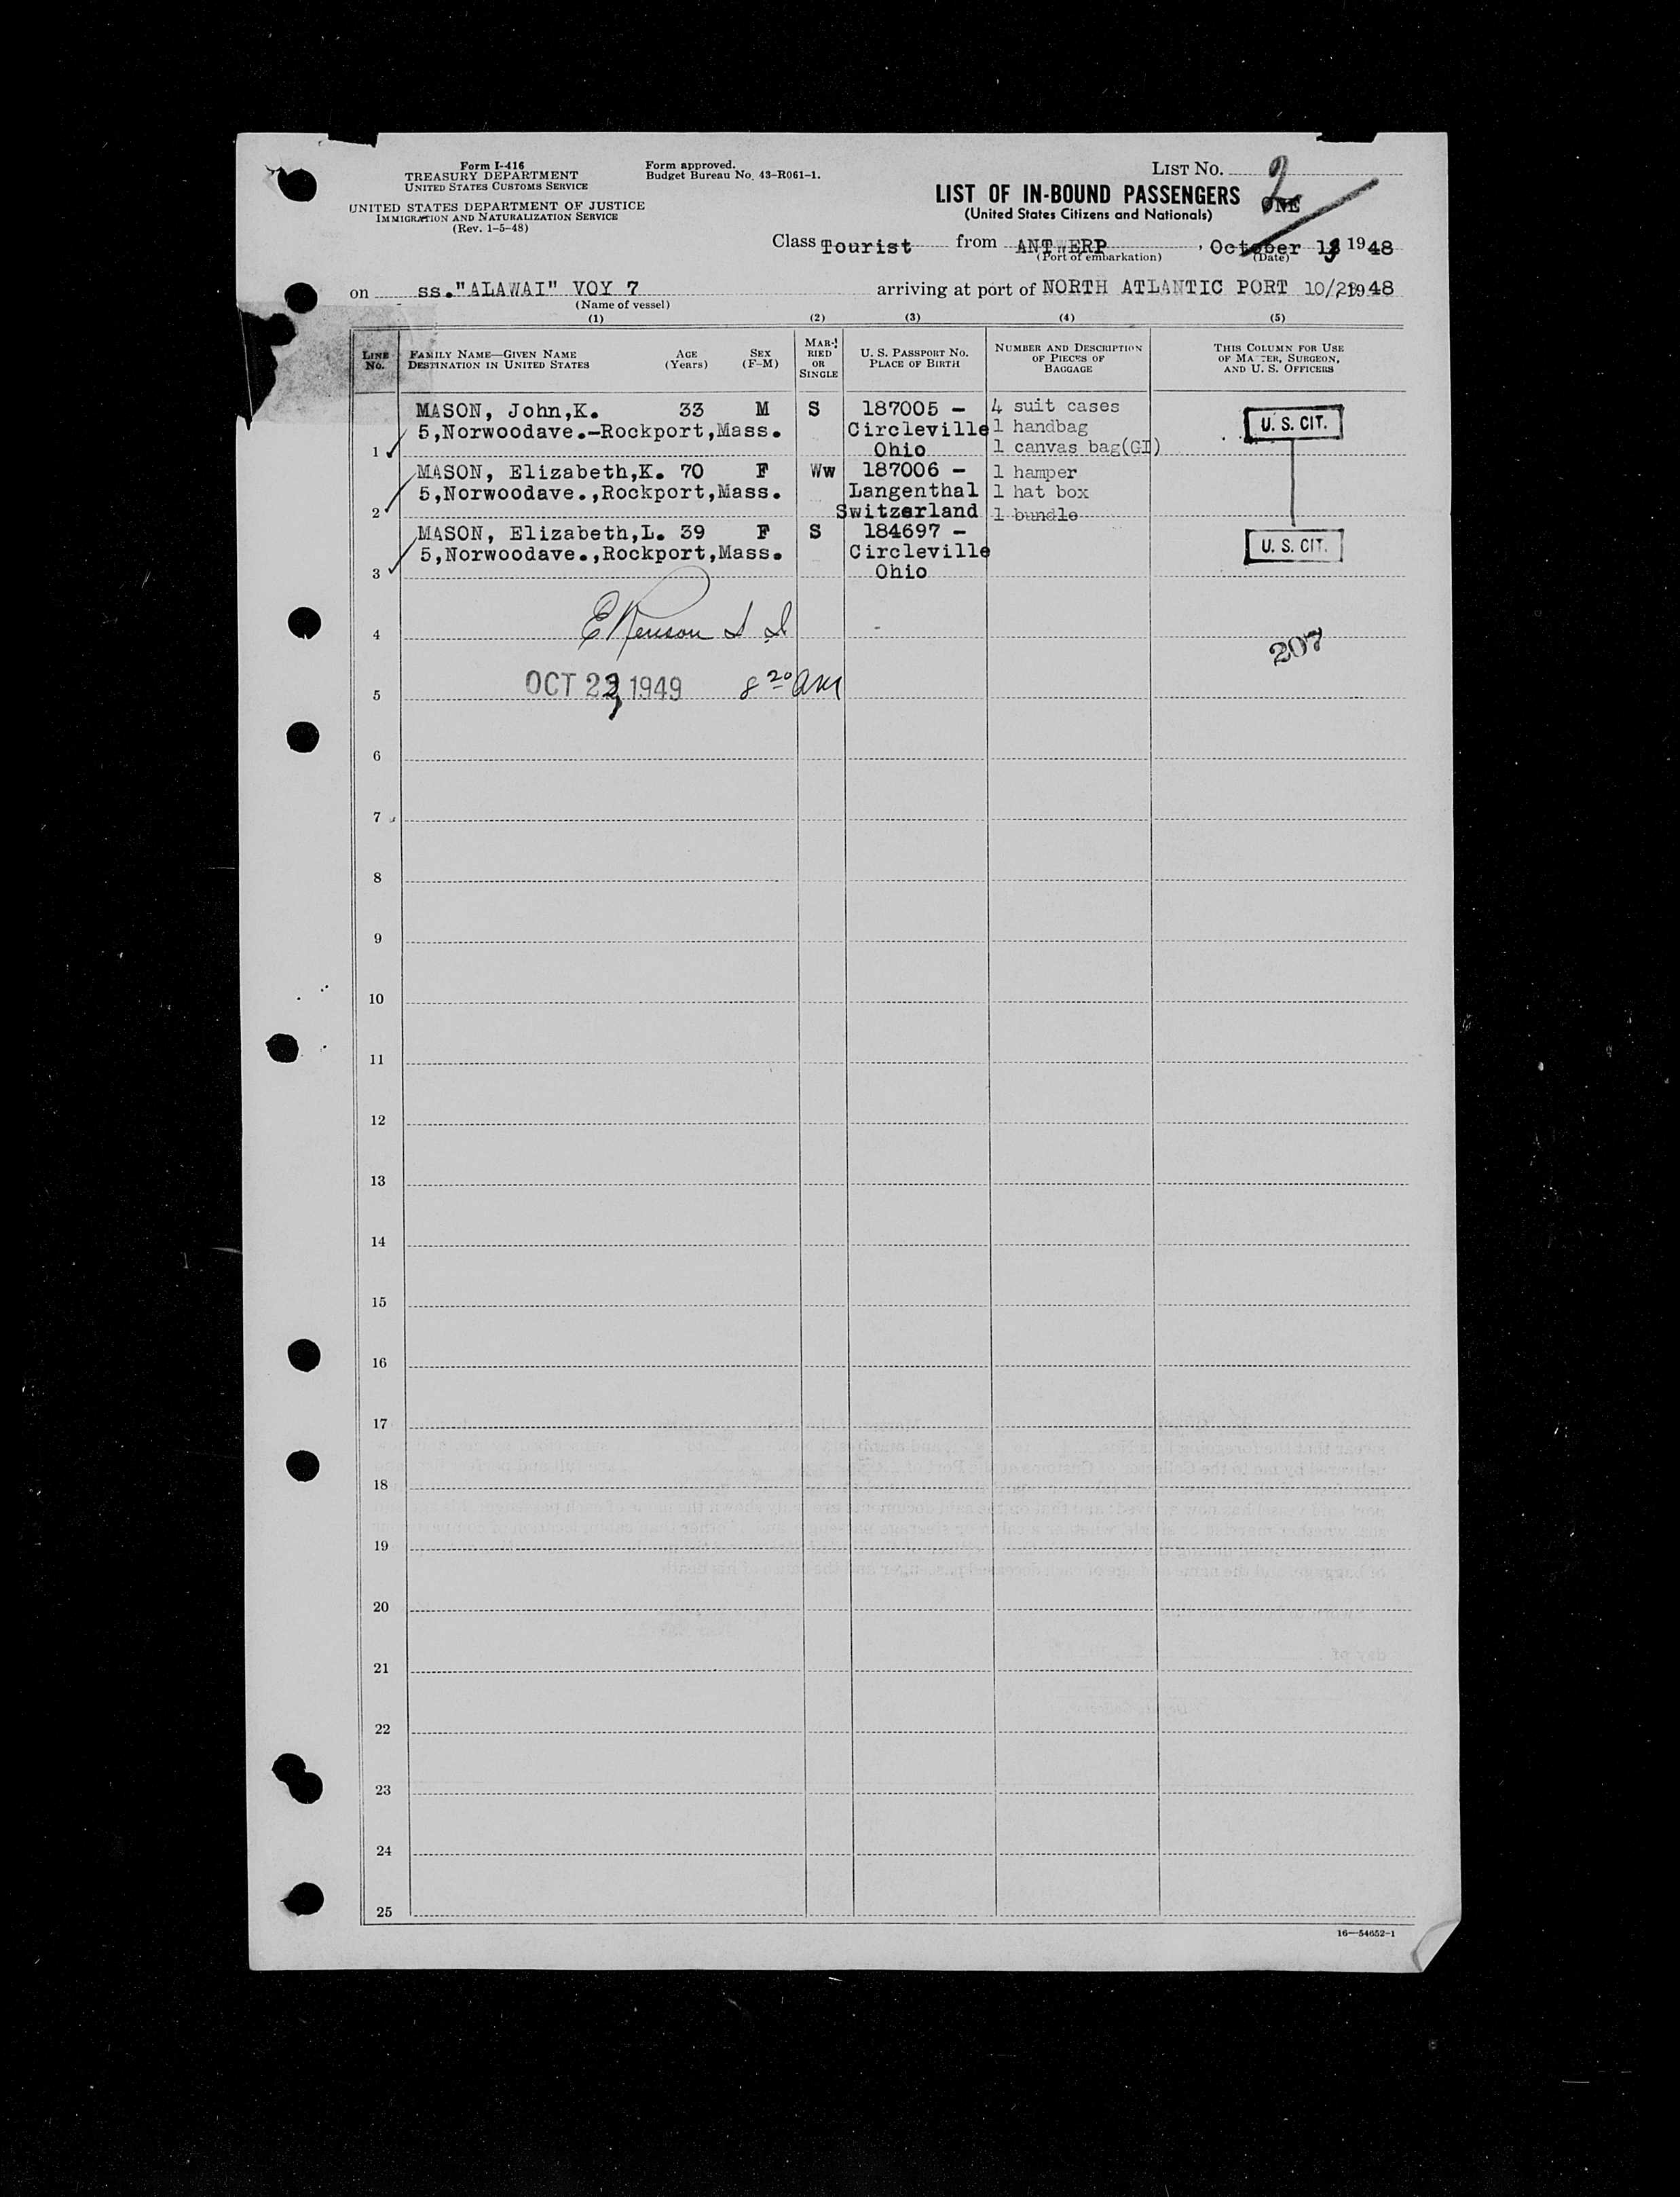 Form I-416
TREASURY DEPARTMENT
UNITED STATES CUSTOMS SERVICE
UNITED STATES DEPARTMENT OF JUSTICE
IMMIGRATION AND NATURALIZATION SERVICE
(Rev. 1-5-48)
Form approved.
Budget Bureau No. 43-R061-1.
LIST No. 2
ONE
LIST OF IN-BOUND PASSENGERS
(United States Citizens and Nationals)
Class Tourist from ANTWERP, October 13 1948
(Port of embarkation) (Date)
on ss."ALAWAI" VOY 7 arriving at port of NORTH ATLANTIC PORT 10/23 1948
(Name of vessel)
(1) (2) (3) (4) (5)
LINE No.
FAMILY NAME—GIVEN NAME
DESTINATION IN UNITED STATES
AGE (Years)
SEX (F-M)
MARRIED OR SINGLE
U. S. PASSPORT No.
PLACE OF BIRTH
NUMBER AND DESCRIPTION
OF PIECES OF
BAGGAGE
THIS COLUMN FOR USE
OF MASTER, SURGEON,
AND U. S. OFFICERS
MASON, John,K. 33 M S 187005 - 4 suit cases
5,Norwoodave.-Rockport,Mass. Circleville 1 handbag U. S. CIT.
1 Ohio 1 canvas bag(GI)
MASON, Elizabeth,K. 70 F Ww 187006 - 1 hamper
5,Norwoodave.,Rockport,Mass. Langenthal 1 hat box
2 Switzerland 1 bundle
MASON, Elizabeth,L. 39 F S 184697 -
5,Norwoodave.,Rockport,Mass. Circleville U. S. CIT.
3 Ohio
4 207
5 OCT 23 1949 8 20 AM
6
7
8
9
10
11
12
13
14
15
16
17
18
19
20
21
22
23
24
25
16—54652-1